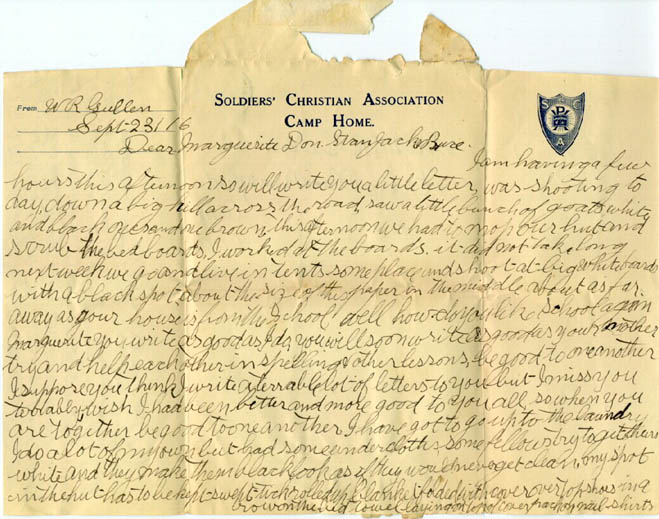 SOLDIERS' CHRISTIAN ASSOCIATION
CAMP HOME.
S C A
From W R Gullen
Sept 23 / 16
Dear Marguerite Don Stan Jack &
I am having a few
hours this afternoon so will write you a little letter, was shooting to
day, down a big hill across the road, saw a little bunch of goats white
and black ones and one brown, this afternoon we had to mop our hut and
scrub the bed boards, I worked at the boards, it did not take long
next week we go and live in tents some place and shoot at big white boards
with a black spot about the size of this paper in the middle about as far
away as your house is from the School well how do you like school again
Marguerite you write as good as I do, you will soon write as good as your Mother
try and help each other in spelling & other lessons be good to one another
I suppose you think I write a terrable lot of letters to you but I miss you
wish I had been better and more good to you all so when you
are together be good to one another I have got to go up to the laundry
I do a lot of my own but had some under cloths some fellows try to get theirs
white and they make them black look as if they would never get clean, my spot
in the hut has to be kept swept tick rolled up blankets fold with cover over top shoes in a
row on the bed towel laying on top of cover